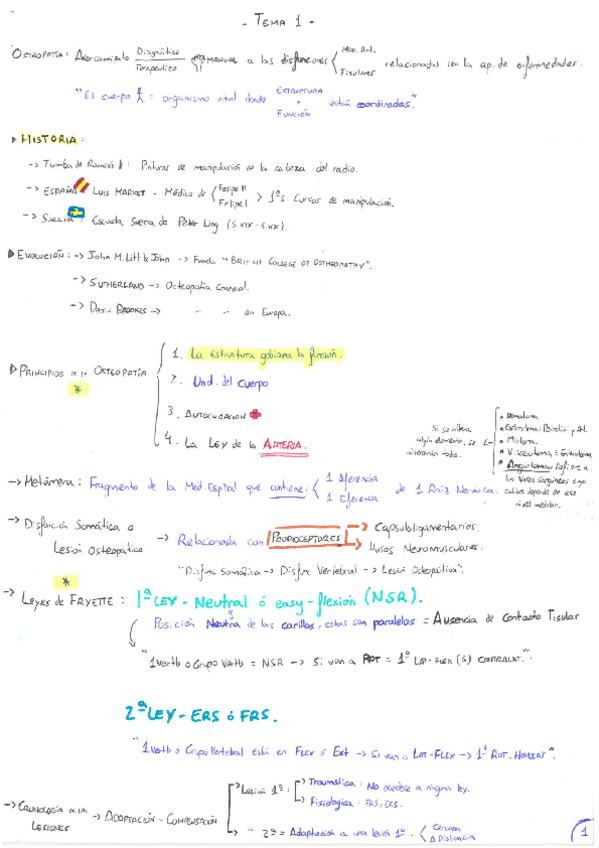 - TEMA 1 -
OSTEOPATÍA: Acercamiento Diagnóstico Terapéutico MANUAL a las disfunciones Mov. Art. Tisulares relacionadas con la ap. de enfermedades.
"El cuerpo = organismo vital donde ESTRUCTURA + FUNCIÓN están coordinadas."
HISTORIA:
-> Tumba de Ramsés II: Pinturas de manipulación de la cabeza del radio.
-> ESPAÑA LUIS MERCAT - Médico de Felipe II Felipe I > 1ºs Cursos de manipulación.
-> SUECIA: Escuela Sueca de Peter Ling (S.XIX-S.XX).
EVOLUCIÓN: -> John M. Littlejohn -> Funda "BRITISH COLLEGE OF OSTHEOPATHY".
-> SUTHERLAND -> Osteopatía Craneal.
-> BROOKES -> " " en Europa.
PRINCIPIOS de la OSTEOPATÍA *
1. La estructura gobierna la función.
2. Und. del Cuerpo
3. AUTOCURACIÓN
4. La LEY de la ARTERIA.
Si se altera algún elemento, se alterarán todos.
* Dermatoma.
* Esclerotoma: Periostio y Art.
* Miotoma.
* Viscerotoma ó Enterotoma
* Angiotoma: Refiere a los vasos sanguíneos cuyo calibre depende de ese nivel metam.
-> Metámera: Fragmento de la Med. Espinal que contiene: 1 Aferencia 1 Eferencia de 1 Raíz Nerviosa.
-> Disfunción Somática o Lesión Osteopática -> Relacionada con PROPIOCEPTORES -> Capsuloligamentarios. -> Husos Neuromusculares.
"Disfunc Somática -> Disfunc Vertebral -> Lesión Osteopática".
*
-> Leyes de FRYETTE: 1ª LEY - Neutral ó easy-flexión (NSR).
Posición Neutra de las carillas, estas son paralelas = Ausencia de Contacto Tisular
"1 Vertb o Grupo Vertb = NSR -> Si van a ROT = 1º LAT-FLEX (S) CONTRALAT."
2ª LEY - ERS ó FRS.
"1 Vertb o Grupo Vertebral está en FLEX ó EXT -> Si van a LAT-FLEX -> 1º ROT. HOMOLAT".
-> CRONOLOGÍA de las LESIONES -> ADAPTACIÓN - COMPENSACIÓN
-> Lesión 1ª: -> Traumática: No obedece a ninguna ley.
-> Fisiológica: FRS, ERS.
-> " 2ª = Adaptación a una lesión 1ª. Cercana A Distancia
1